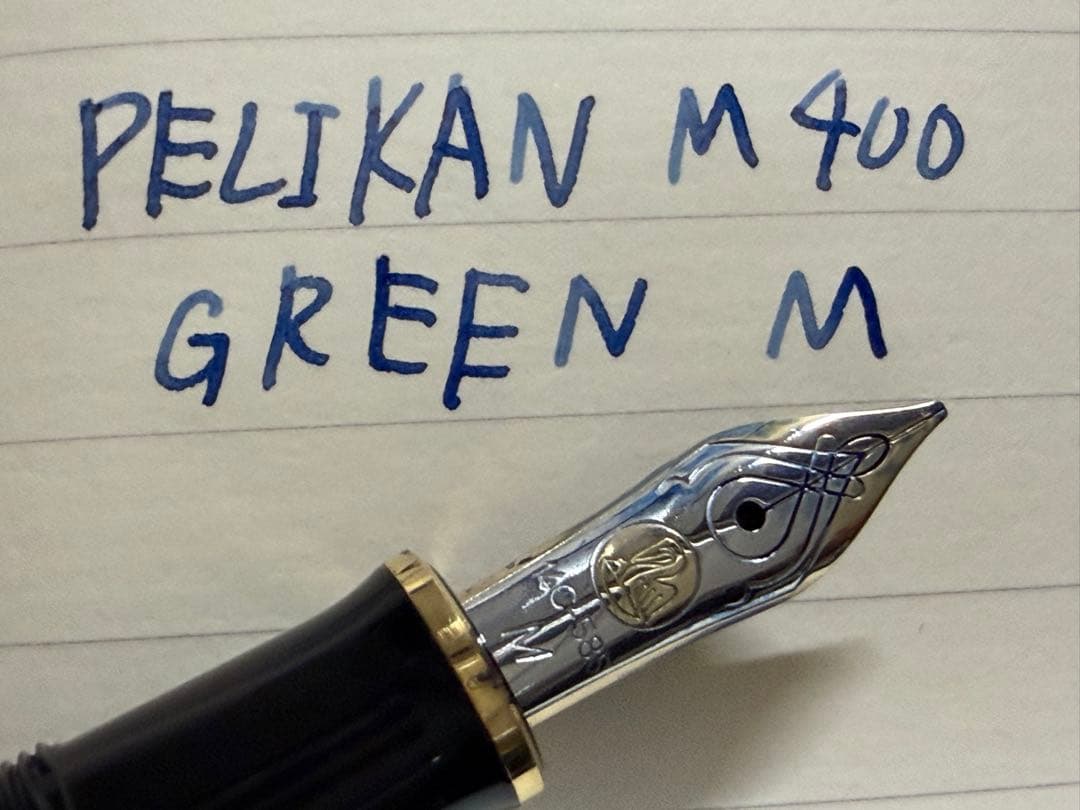 PELIKAN M400
GREEN M
14C-585
M